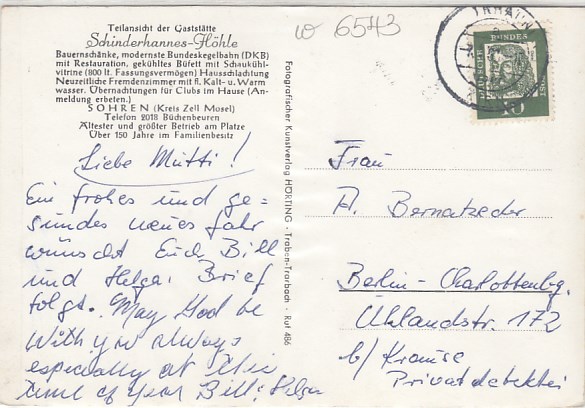 Teilansicht der Gaststätte
Schinderhannes-Höhle
Bauernschänke, modernste Bundeskegelbahn (DKB)
mit Restauration, gekühltes Büfett mit Schaukühl-
vitrine (800 lt. Fassungsvermögen) Hausschlachtung
Neuzeitliche Fremdenzimmer mit fl. Kalt- u. Warm
wasser. Übernachtungen für Clubs im Hause (An-
meldung erbeten.)
SOHREN (Kreis Zell Mosel)
Telefon 2018 Büchenbeuren
Ältester und größter Betrieb am Platze
Über 150 Jahre im Familienbesitz
Liebe Mutti!
Ein frohes und ge-
sundes neues Jahr
wünscht Euch, Bill
und Helga. Brief
folgt. May God be
with you always
especially at this
time of year Bill & Helga
Fotografischer Kunstverlag HORTING · Traben-Trarbach · Ruf 486
w 6543
DEUTSCHE BUNDESPOST
10
Frau
A. Bernatzeder
Berlin-Charlottenbg.
Uhlandstr. 172
b/ Krause
Privatdetektei